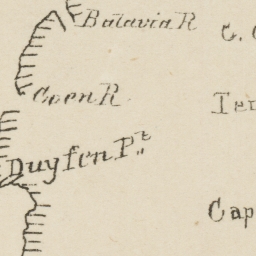 Batavia R
C.
Coen R.
Duyfen Pt.
Cap